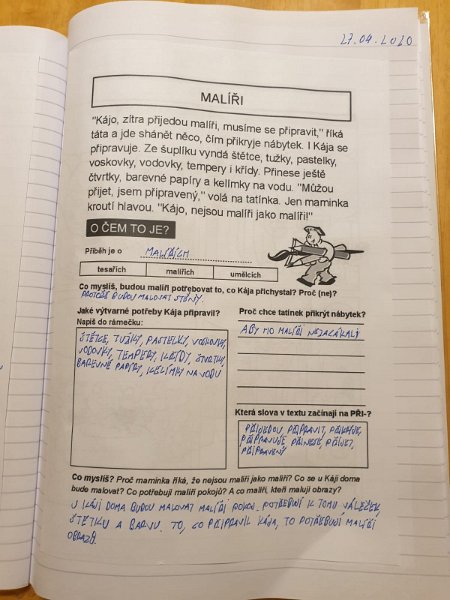 27.04.2020
MALÍŘI
"Kájo, zítra přijedou malíři, musíme se připravit," říká
táta a jde shánět něco, čím přikryje nábytek. I Kája se
připravuje. Ze šuplíku vyndá štětce, tužky, pastelky,
voskovky, vodovky, tempery i křídy. Přinese ještě
čtvrtky, barevné papíry a kelímky na vodu. "Můžou
přijet, jsem připravený," volá na tatínka. Jen maminka
kroutí hlavou. "Kájo, nejsou malíři jako malíři!"
O ČEM TO JE?
Příběh je o MALÍŘÍCH
tesařích malířích umělcích
Co myslíš, budou malíři potřebovat to, co Kája přichystal? Proč (ne)?
PROTOŽE BUDOU MALOVAT STĚNY.
Jaké výtvarné potřeby Kája připravil?
Napiš do rámečku:
ŠTĚTCE, TUŽKY, PASTELKY, VOSKOVKY,
VODOVKY, TEMPERY, KŘÍDY, ČTVRTKY
BAREVNÉ PAPÍRY, KELÍMKY NA VODU
Proč chce tatínek přikrýt nábytek?
ABY HO MALÍŘI NEZACÁKALI
Která slova v textu začínají na PŘI-?
PŘIJEDOU, PŘIPRAVIT, PŘIKRYJE,
PŘIPRAVUJE, PŘINESE, PŘIJET,
PŘIPRAVENÝ
Co myslíš? Proč maminka říká, že nejsou malíři jako malíři? Co se u Káji doma
bude malovat? Co potřebují malíři pokojů? A co malíři, kteří malují obrazy?
U KÁJI DOMA BUDOU MALOVAT MALÍŘI POKOJ. POTŘEBUJÍ K TOMU VÁLEČEK,
ŠTĚTKU A BARVU. TO, CO PŘIPRAVIL KÁJA, TO POTŘEBUJÍ MALÍŘI
OBRAZŮ.